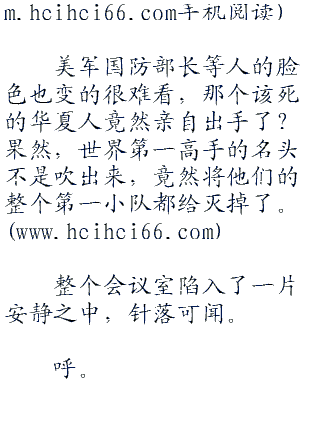 m.hcihci66.com手机阅读)
美军国防部长等人的脸
色也变的很难看，那个该死
的华夏人竟然亲自出手了？
果然，世界第一高手的名头
不是吹出来，竟然将他们的
整个第一小队都给灭掉了。
(www.hcihci66.com)
整个会议室陷入了一片
安静之中，针落可闻。
呼。